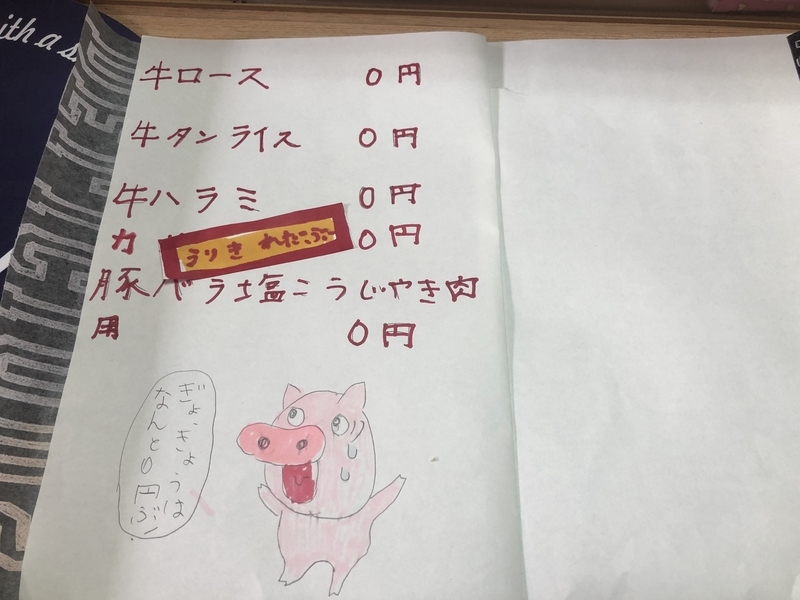 ith a s
牛ロース 0円
牛タンライス 0円
牛ハラミ 0円
カ 0円
うりきれだぶ〜
豚バラ塩こうじやき肉
用 0円
ぎょ、きょうは
なんと0円ぶ!